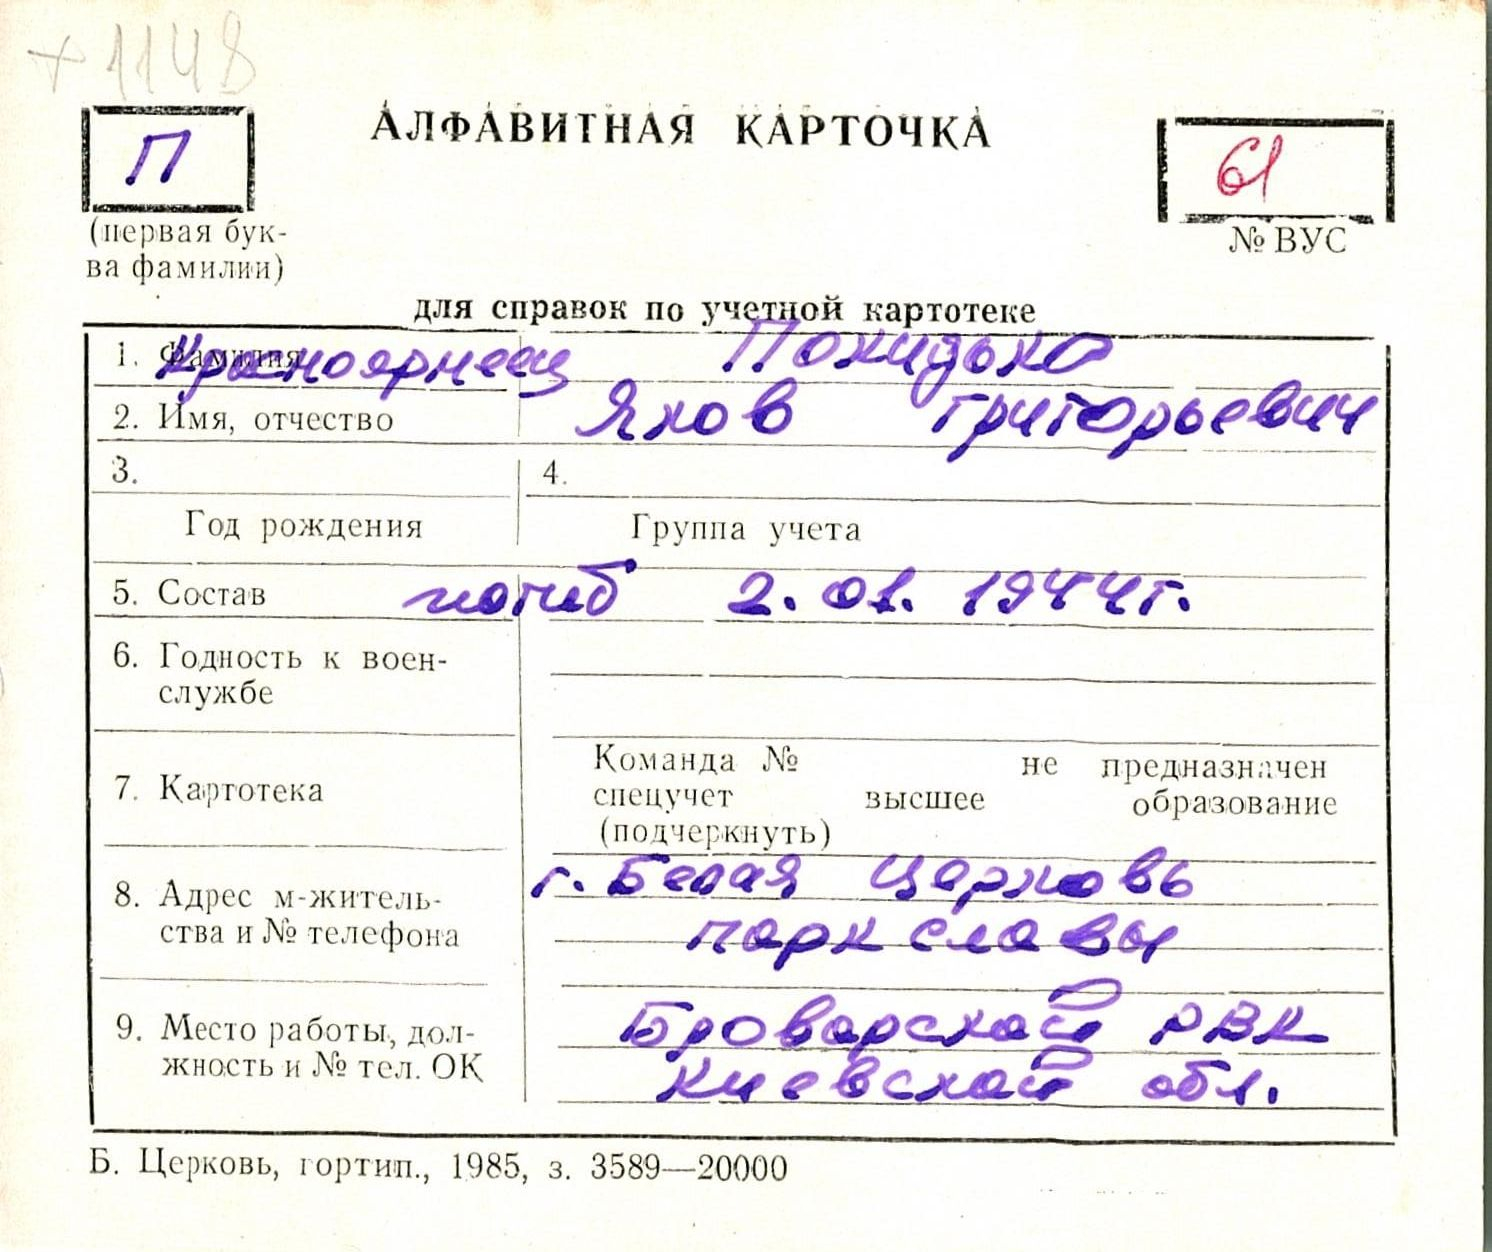 +1148
П
АЛФАВИТНАЯ КАРТОЧКА
61
(первая бук-
ва фамилии)
№ ВУС
для справок по учетной картотеке
1. Фамилия
Красноармеец Покидько
2. Имя, отчество Яков Григорьевич
3. 4.
Год рождения Группа учета
5. Состав погиб 2.01.1944г.
6. Годность к воен-
службе
7. Картотека
Команда № не предназначен
спецучет высшее образование
(подчеркнуть)
8. Адрес м-житель-
ства и № телефона
г. Белая Церковь
парк славы
9. Место работы, дол-
жность и № тел. ОК
Броварской РВК
Киевской обл.
Б. Церковь, гортип., 1985, з. 3589—20000